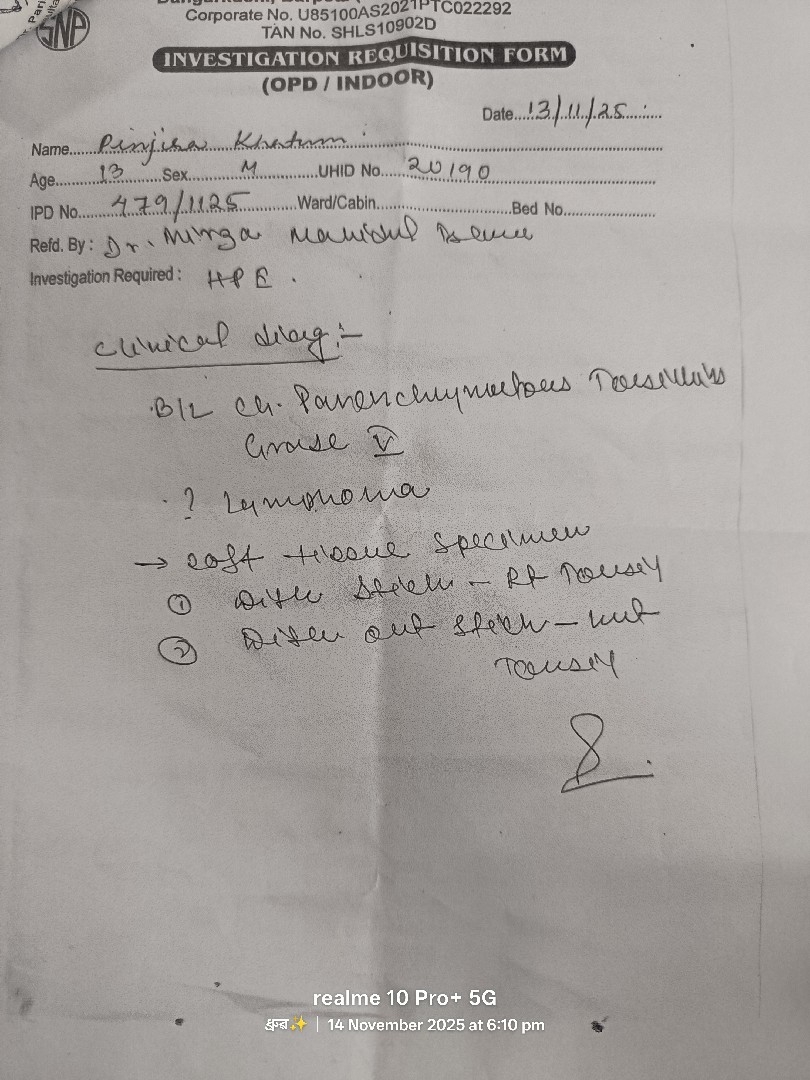 SNP
Corporate No. U85100AS2021PTC022292
TAN No. SHLS10902D
INVESTIGATION REQUISITION FORM
(OPD / INDOOR)
Date....13/11/25
Name....Pinjira Khatun
Age....13....Sex....M....UHID No....20190
IPD No....479/1125....Ward/Cabin....Bed No....
Refd. By : Dr. Mirza
Investigation Required : HPE.
Clinical diag :-
B/L Ch. Parenchymatous Tonsillitis
Grade V
? Lymphoma
→ soft tissue specimen
① With stich - Rt Tonsil
② With out stich -
Tonsil
realme 10 Pro+ 5G
ध्रुব✨ | 14 November 2025 at 6:10 pm